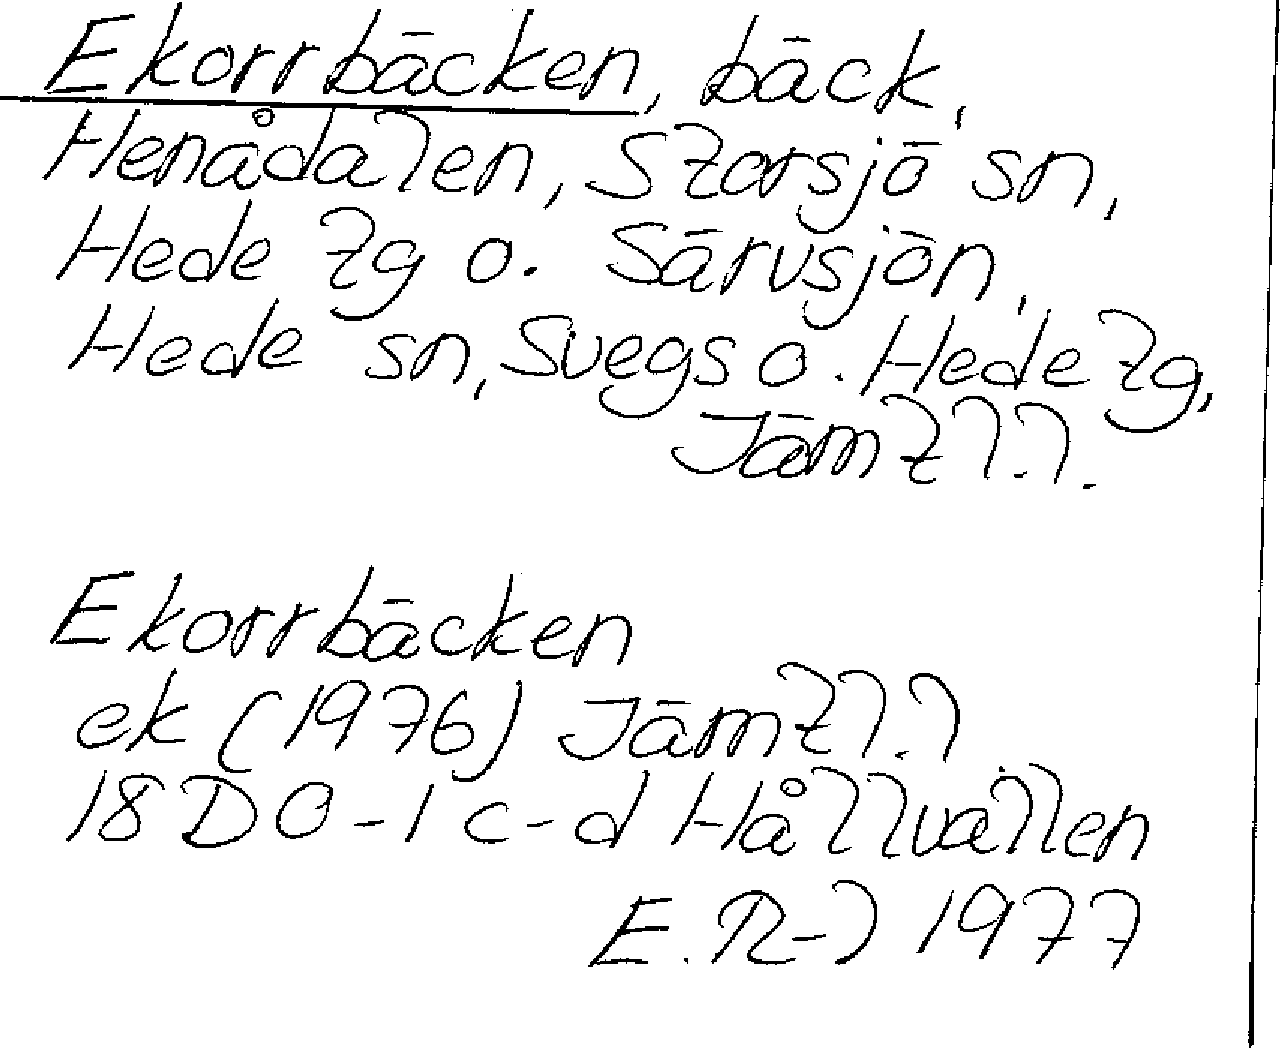 Ekorrbäcken, bäck,
Henådalen, Storsjö sn,
Hede tg o. Särvsjön,
Hede sn, Svegs o. Hede tg,
Jämtl.l.
Ekorrbäcken
ek (1976) Jämtl.l
18D0-1c-d Hållvallen
E.R-l 1977